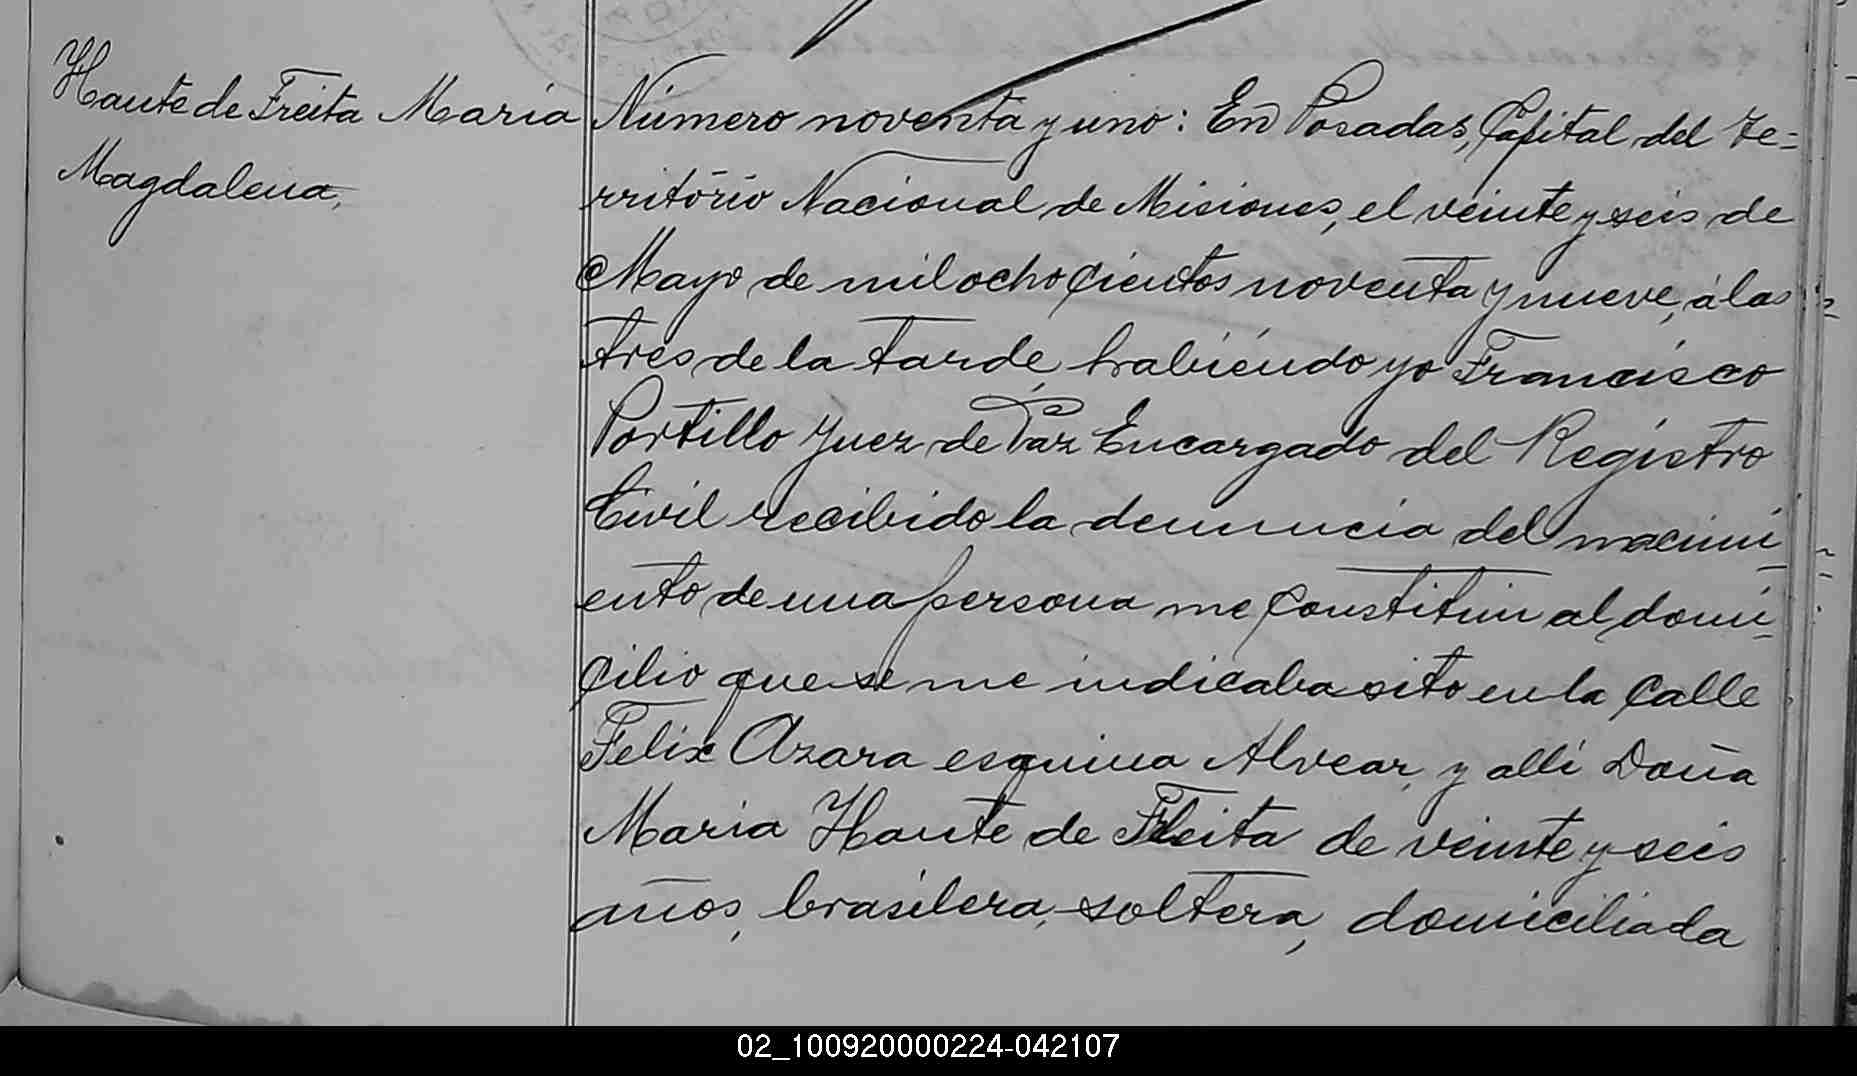 Haute de Freita Maria
Magdalena,
Número noventa y uno: En Posadas, Capital del Te=
rritório Nacional de Misiones, el veinte y seis de
Mayo de mil ochocientos noventa y nueve, á las
tres de la tarde, habiéndo yo Francisco
Portillo Juez de Paz Encargado del Registro
Civil recibido la denuncia del nacimi
ento de una persona me constitui al domi
cilio que se me indicaba sito en la calle
Felix Azara esquina Alvear, y alli Doña
Maria Haute de Freita de veinte y seis
años, brasilera, soltera, domiciliada
02_100920000224-042107